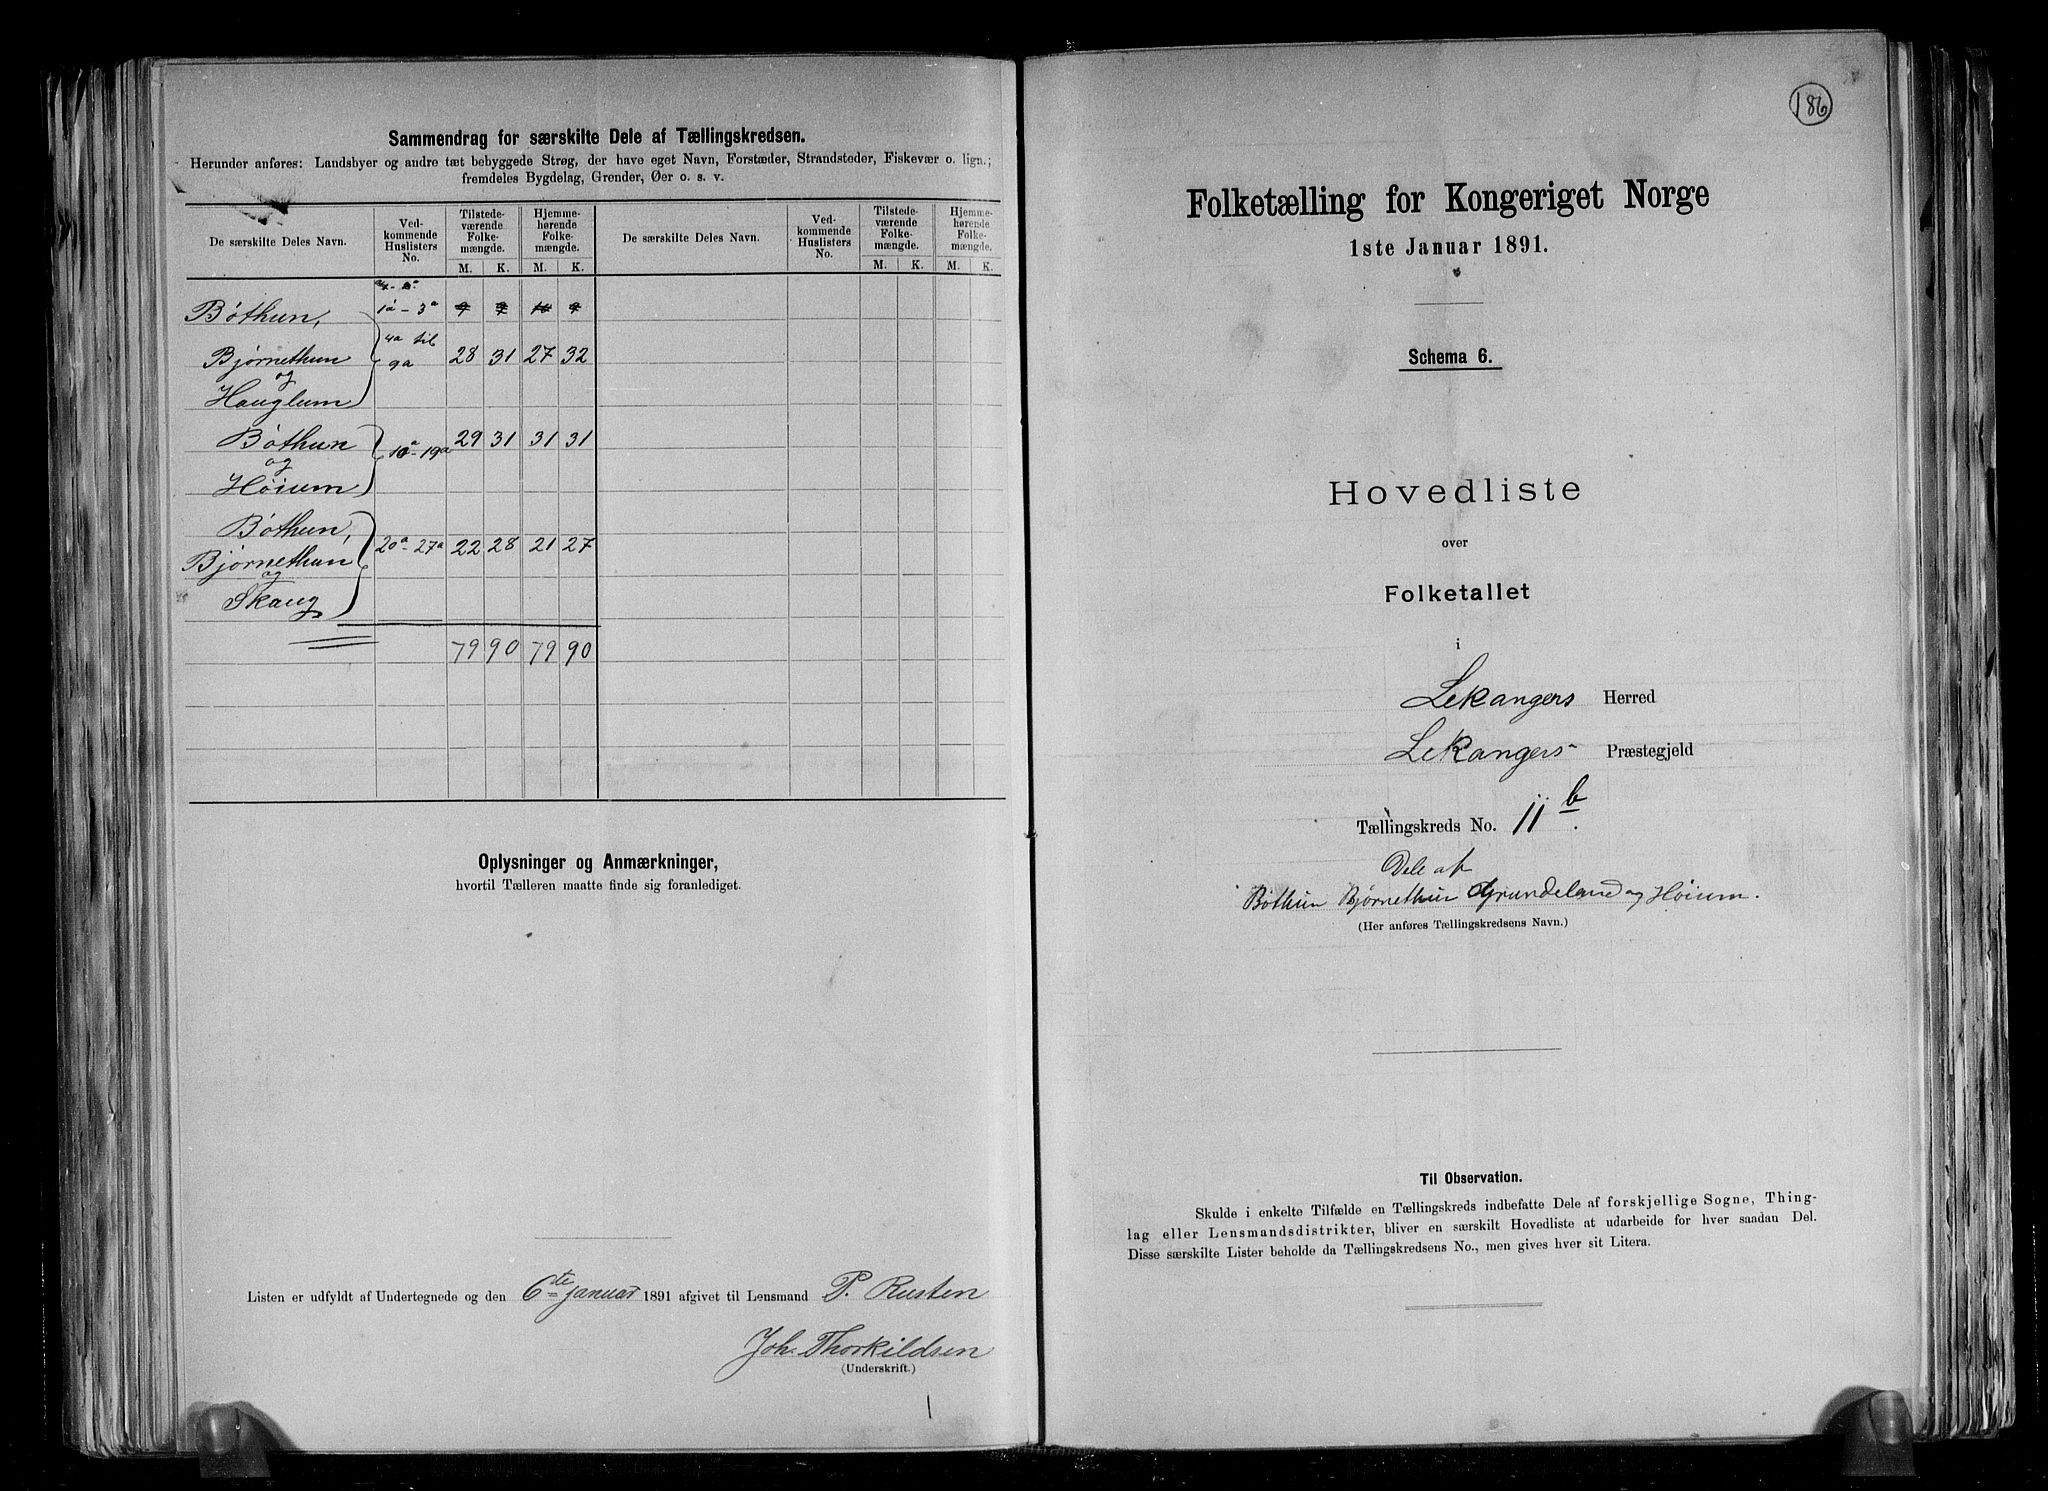 Sammendrag for særskilte Dele af Tællingskredsen.
Herunder anføres: Landsbyer og andre tæt bebyggede Strøg, der have eget Navn, Forstæder, Strandsteder, Fiskevær o. lign.;
fremdeles Bygdelag, Grender, Øer o. s. v.
De særskilte Deles Navn.
Ved-
kommende
Huslisters
No.
Tilstede-
værende
Folke-
mængde.
Hjemme-
hørende
Folke-
mængde.
De særskilte Deles Navn.
Ved-
kommende
Huslisters
No.
Tilstede-
værende
Folke-
mængde.
Hjemme-
hørende
Folke-
mængde.
M. K. M. K. M. K. M. K.
Bøthun, 1a - 3a
4a til
Bjørnethun 9a 28 31 27 32
og
Hauglum
Bøthun 29 31 31 31
og 10a - 19a
Høium
Bøthun,
Bjørnethun 20a - 27a 22 28 21 27
og
Skaug
79 90 79 90
Oplysninger og Anmærkninger,
hvortil Tælleren maatte finde sig foranlediget.
Listen er udfyldt af Undertegnede og den 6te januar 1891 afgivet til Lensmand P. Rusten
Joh. Thorkildsen
(Underskrift.)
186
Folketælling for Kongeriget Norge
1ste Januar 1891.
Schema 6.
Hovedliste
over
Folketallet
i
Lekangers Herred
Lekangers Præstegjeld
Tællingskreds No. 11b.
Dele af
Bøthun Bjørnethun Grundeland og Høium.
(Her anføres Tællingskredsens Navn.)
Til Observation.
Skulde i enkelte Tilfælde en Tællingskreds indbefatte Dele af forskjellige Sogne, Thing-
lag eller Lensmandsdistrikter, bliver en særskilt Hovedliste at udarbeide for hver saadan Del.
Disse særskilte Lister beholde da Tællingskredsens No., men gives hver sit Litera.